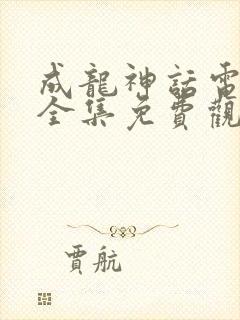 成龍神話電
全集免費觀
賈航